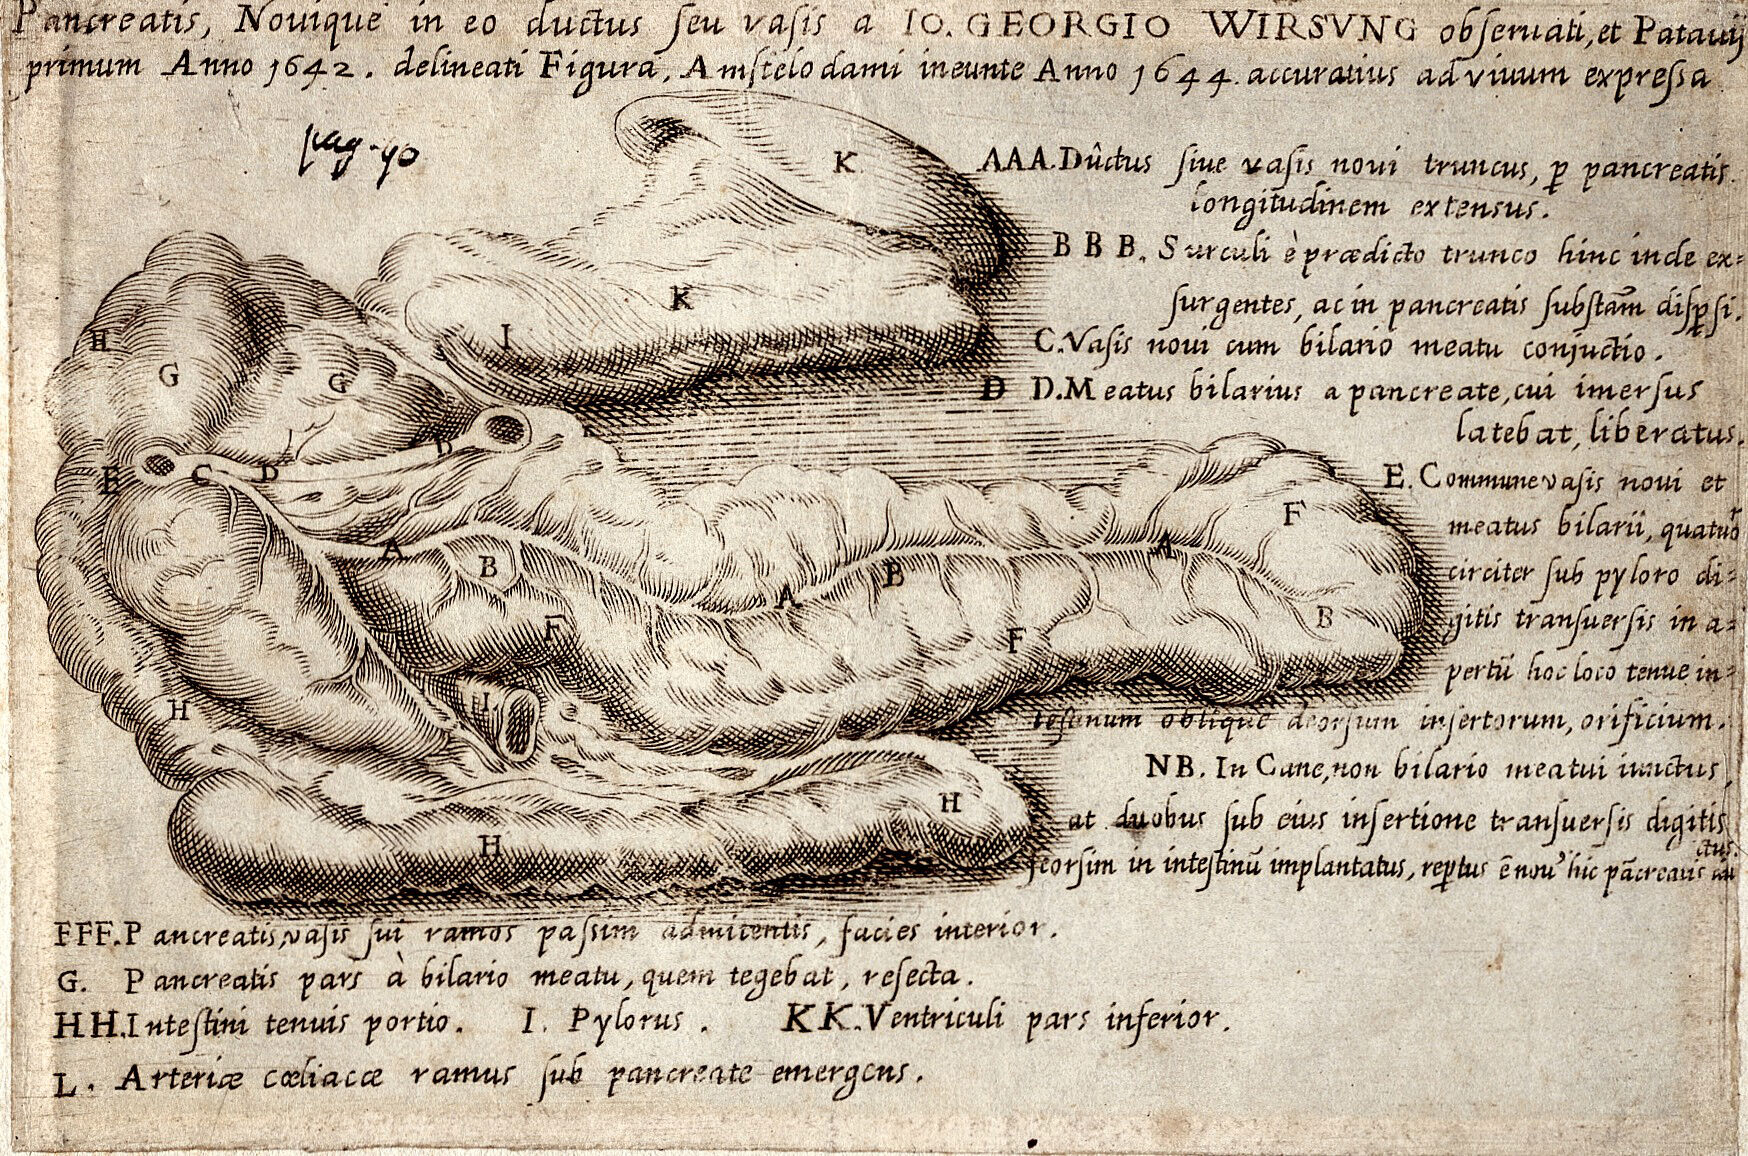 Pancreatis, Novique in eo ductus ſeu vaſis a IO. GEORGIO WIRSVNG obſeruati, et Patauij
primum Anno 1642. delineati Figura, Amſtelodami ineunte Anno 1644. accuratius ad viuum expreſsa
pag. 40
K
AAA. Dûctus ſiue vaſis noui truncus, ꝑ pancreatis
longitudinem extensus.
BBB. Surculi è prædicto trunco hinc inde ex=
ſurgentes, ac in pancreatis ſubſtam̄ diſꝑſi.
K
I
H
G
G
C. Vaſis noui cum bilario meatu conjuctio.
D D. Meatus bilarius a pancreate, cui imerſus
latebat, liberatus.
D
E
C
D
E. Commune vaſis noui et
meatus bilarii, quatuor
circiter ſub pyloro di=
gitis tranſuerſis in a=
pertū hoc loco tenue in=
teſtinum oblique deorſum inſertorum, orificium.
F
A
B
A
B
A
B
F
F
H
L
NB. In Cane, non bilario meatui iunctus
at duobus ſub eius inſertione tranſuerſis digitis
ſeorſim in inteſtinū implantatus, reꝑtus ē nou' hic pācreatis
ctus.
H
H
FFF. Pancreatis, vaſis ſui ramos paſsim admitentis, facies interior.
G. Pancreatis pars à bilario meatu, quem tegebat, reſecta.
HH. Inteſtini tenuis portio. I. Pylorus. KK. Ventriculi pars inferior.
L. Arteriæ cœliacæ ramus ſub pancreate emergens.